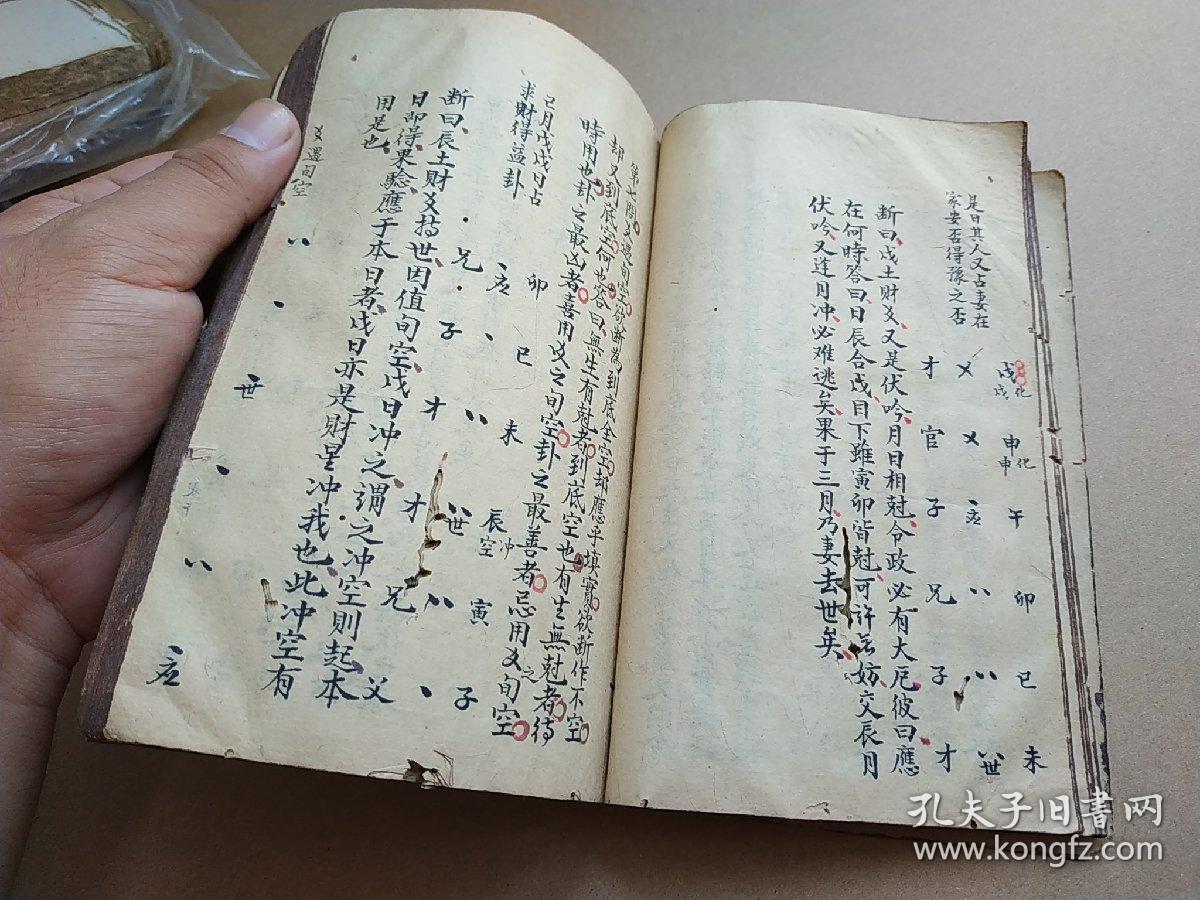 是日其人又占妻在
家安否得豫之否
戌化戌 申化申 午 卯 巳 未
乂 乂 应 世
才 官 子 兄 子 才
断曰戌土财爻又是伏吟月日相尅令政必有大厄彼曰應
在何時答曰日辰合戌目下雖寅卯皆尅可許無妨交辰月
伏吟又逢月冲必难逃矣果于三月乃妻去世矣
第七問爻遇旬空欲断為到底全空却應乎填實欲断作不空
却又到底空何也答曰無生有尅者到底空也有生無尅者待
時用也卦之最凶者喜用爻之旬空卦之最善者忌用爻之旬空
巳月戊戌日占
求財得益卦
卯 巳 未 辰空冲 寅 子
应 世
兄 子 才 才 兄 父
断曰辰土財爻持世因值旬空戌日冲之謂之冲空則起本
日即得果驗應于本日者戌日亦是財星冲我也此冲空有
用是也
爻遇旬空
世 应
孔夫子旧書网
www.kongfz.com